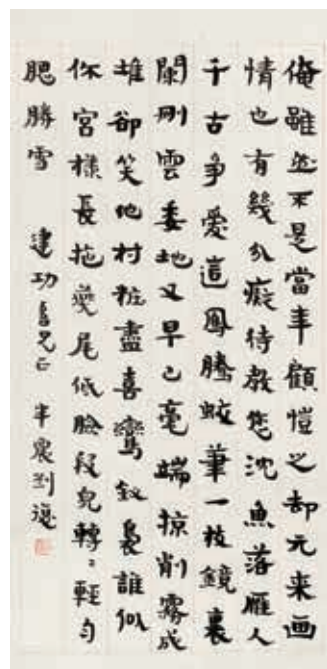 俺雖然不是當年顧愷之却元来画
情也有幾分癡待教您沈魚落雁人
千古爭愛這鳳騰蛟筆一枝鏡裏
闌剛雲委地又早已毫端掠削霧成
堆卻笑他村粧盡喜鸞釵裊誰似
你宮樣長拖燕尾低臉段兒轉〻輕勻
腮勝雪 建功吾兄正 半農劉復